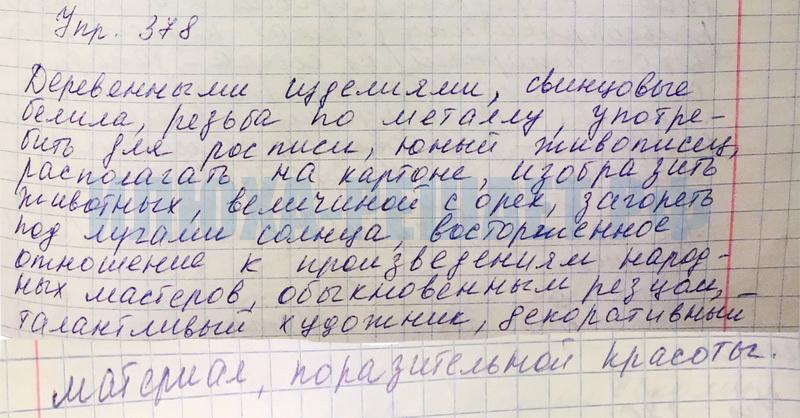 Упр. 378
Деревенными изделиями, свинцовые
белила, резьба по металлу, употре-
бить для росписи, юный живописец,
располагать на картоне, изобразить
животных, величиной с орех, загореть
под лучами солнца, восторженное
отношение к произведениям народ-
ных мастеров, обыкновенным резцом,
талантливый художник, декоративный
материал, поразительной красоты.